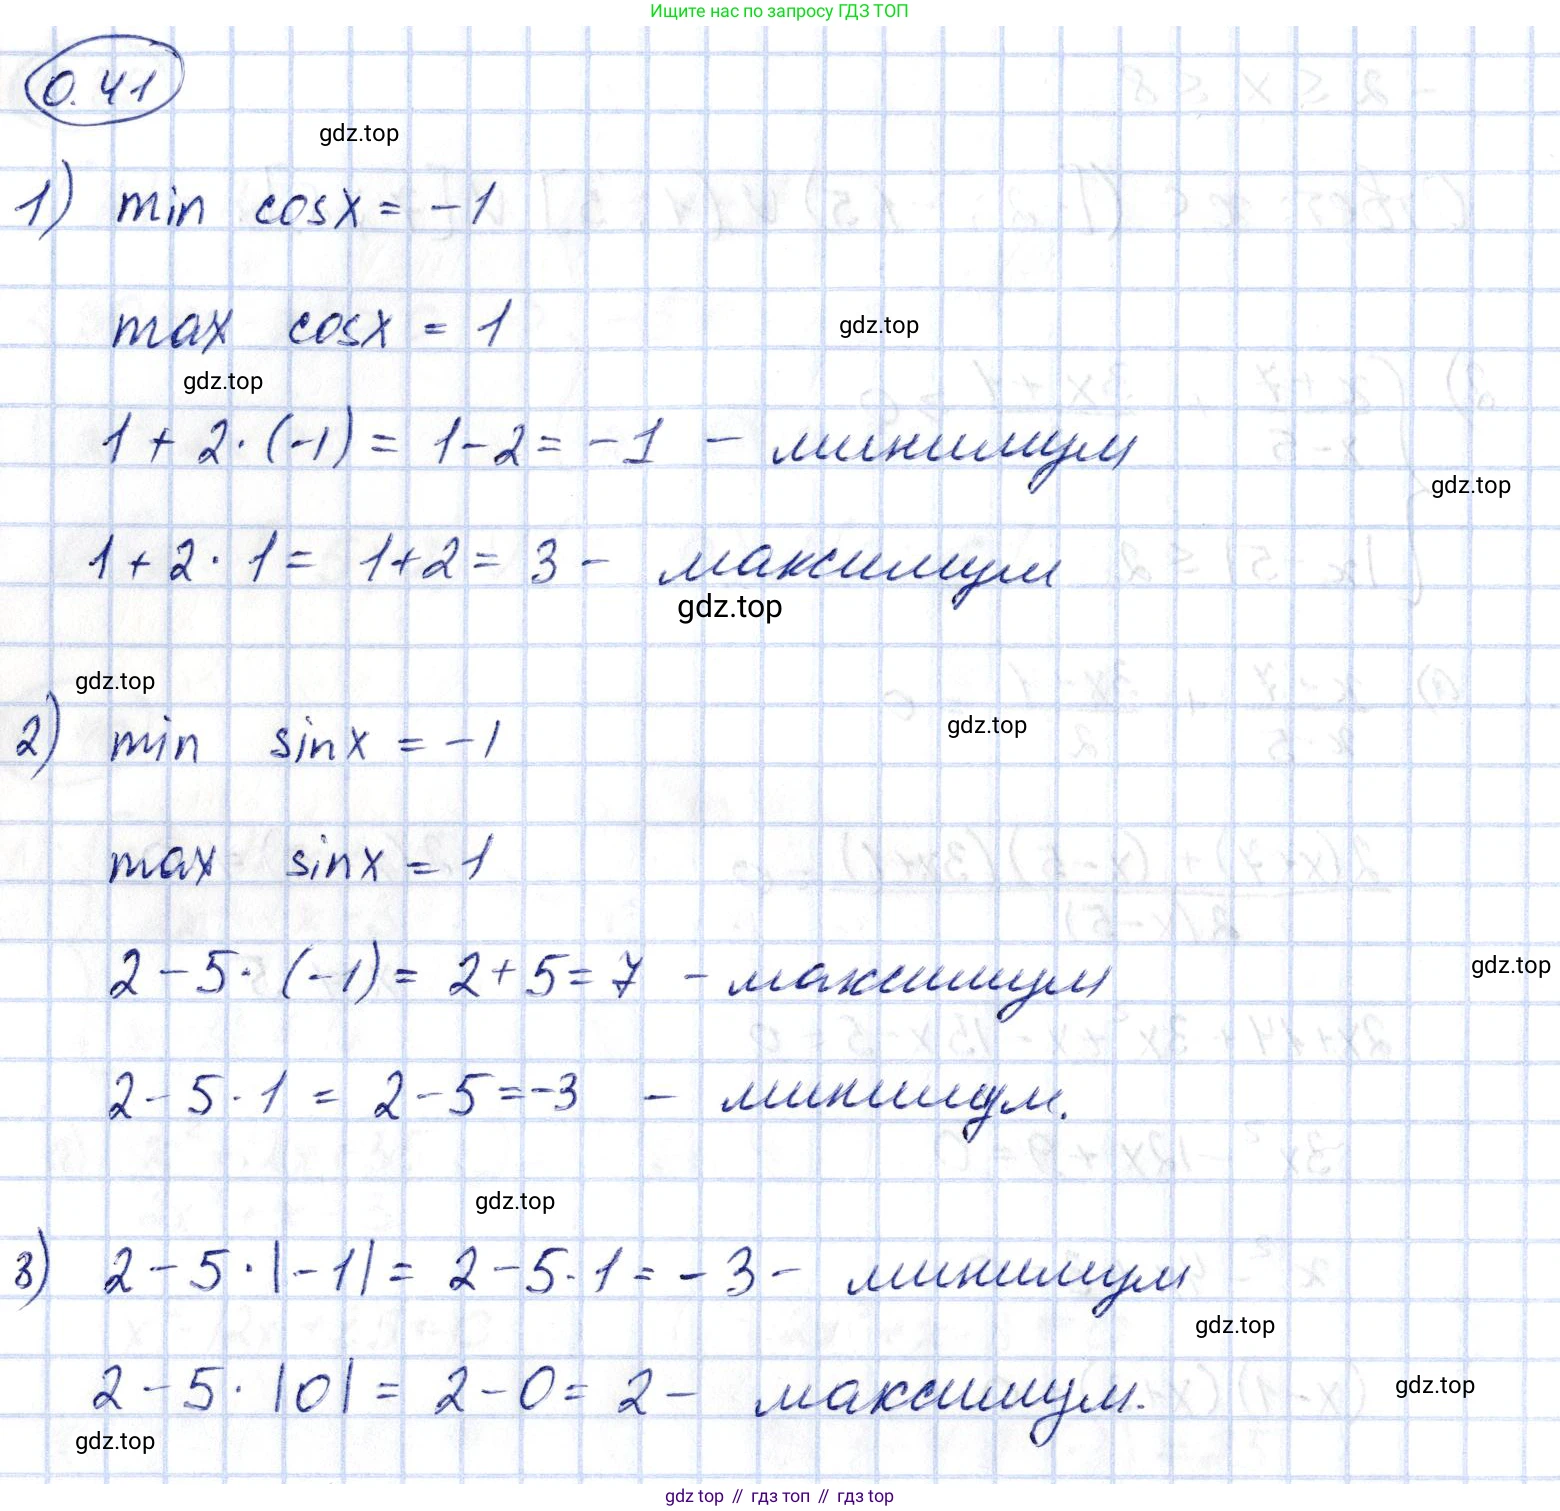 Ищите нас по запросу ГДЗ ТОП
0.41
gdz.top
1) min cosx = -1
max cosx = 1
gdz.top
gdz.top
1 + 2·(-1) = 1-2 = -1 - минимум
gdz.top
1 + 2·1 = 1+2 = 3 - максимум
gdz.top
gdz.top
2) min sinx = -1
gdz.top
max sinx = 1
2 - 5·(-1) = 2+5 = 7 - максимум
gdz.top
2 - 5·1 = 2-5 = -3 - минимум.
gdz.top
3) 2 - 5·|-1| = 2-5·1 = -3 - минимум
gdz.top
2 - 5·|0| = 2-0 = 2 - максимум.
gdz.top
gdz.top
gdz top // гдз топ // гдз top